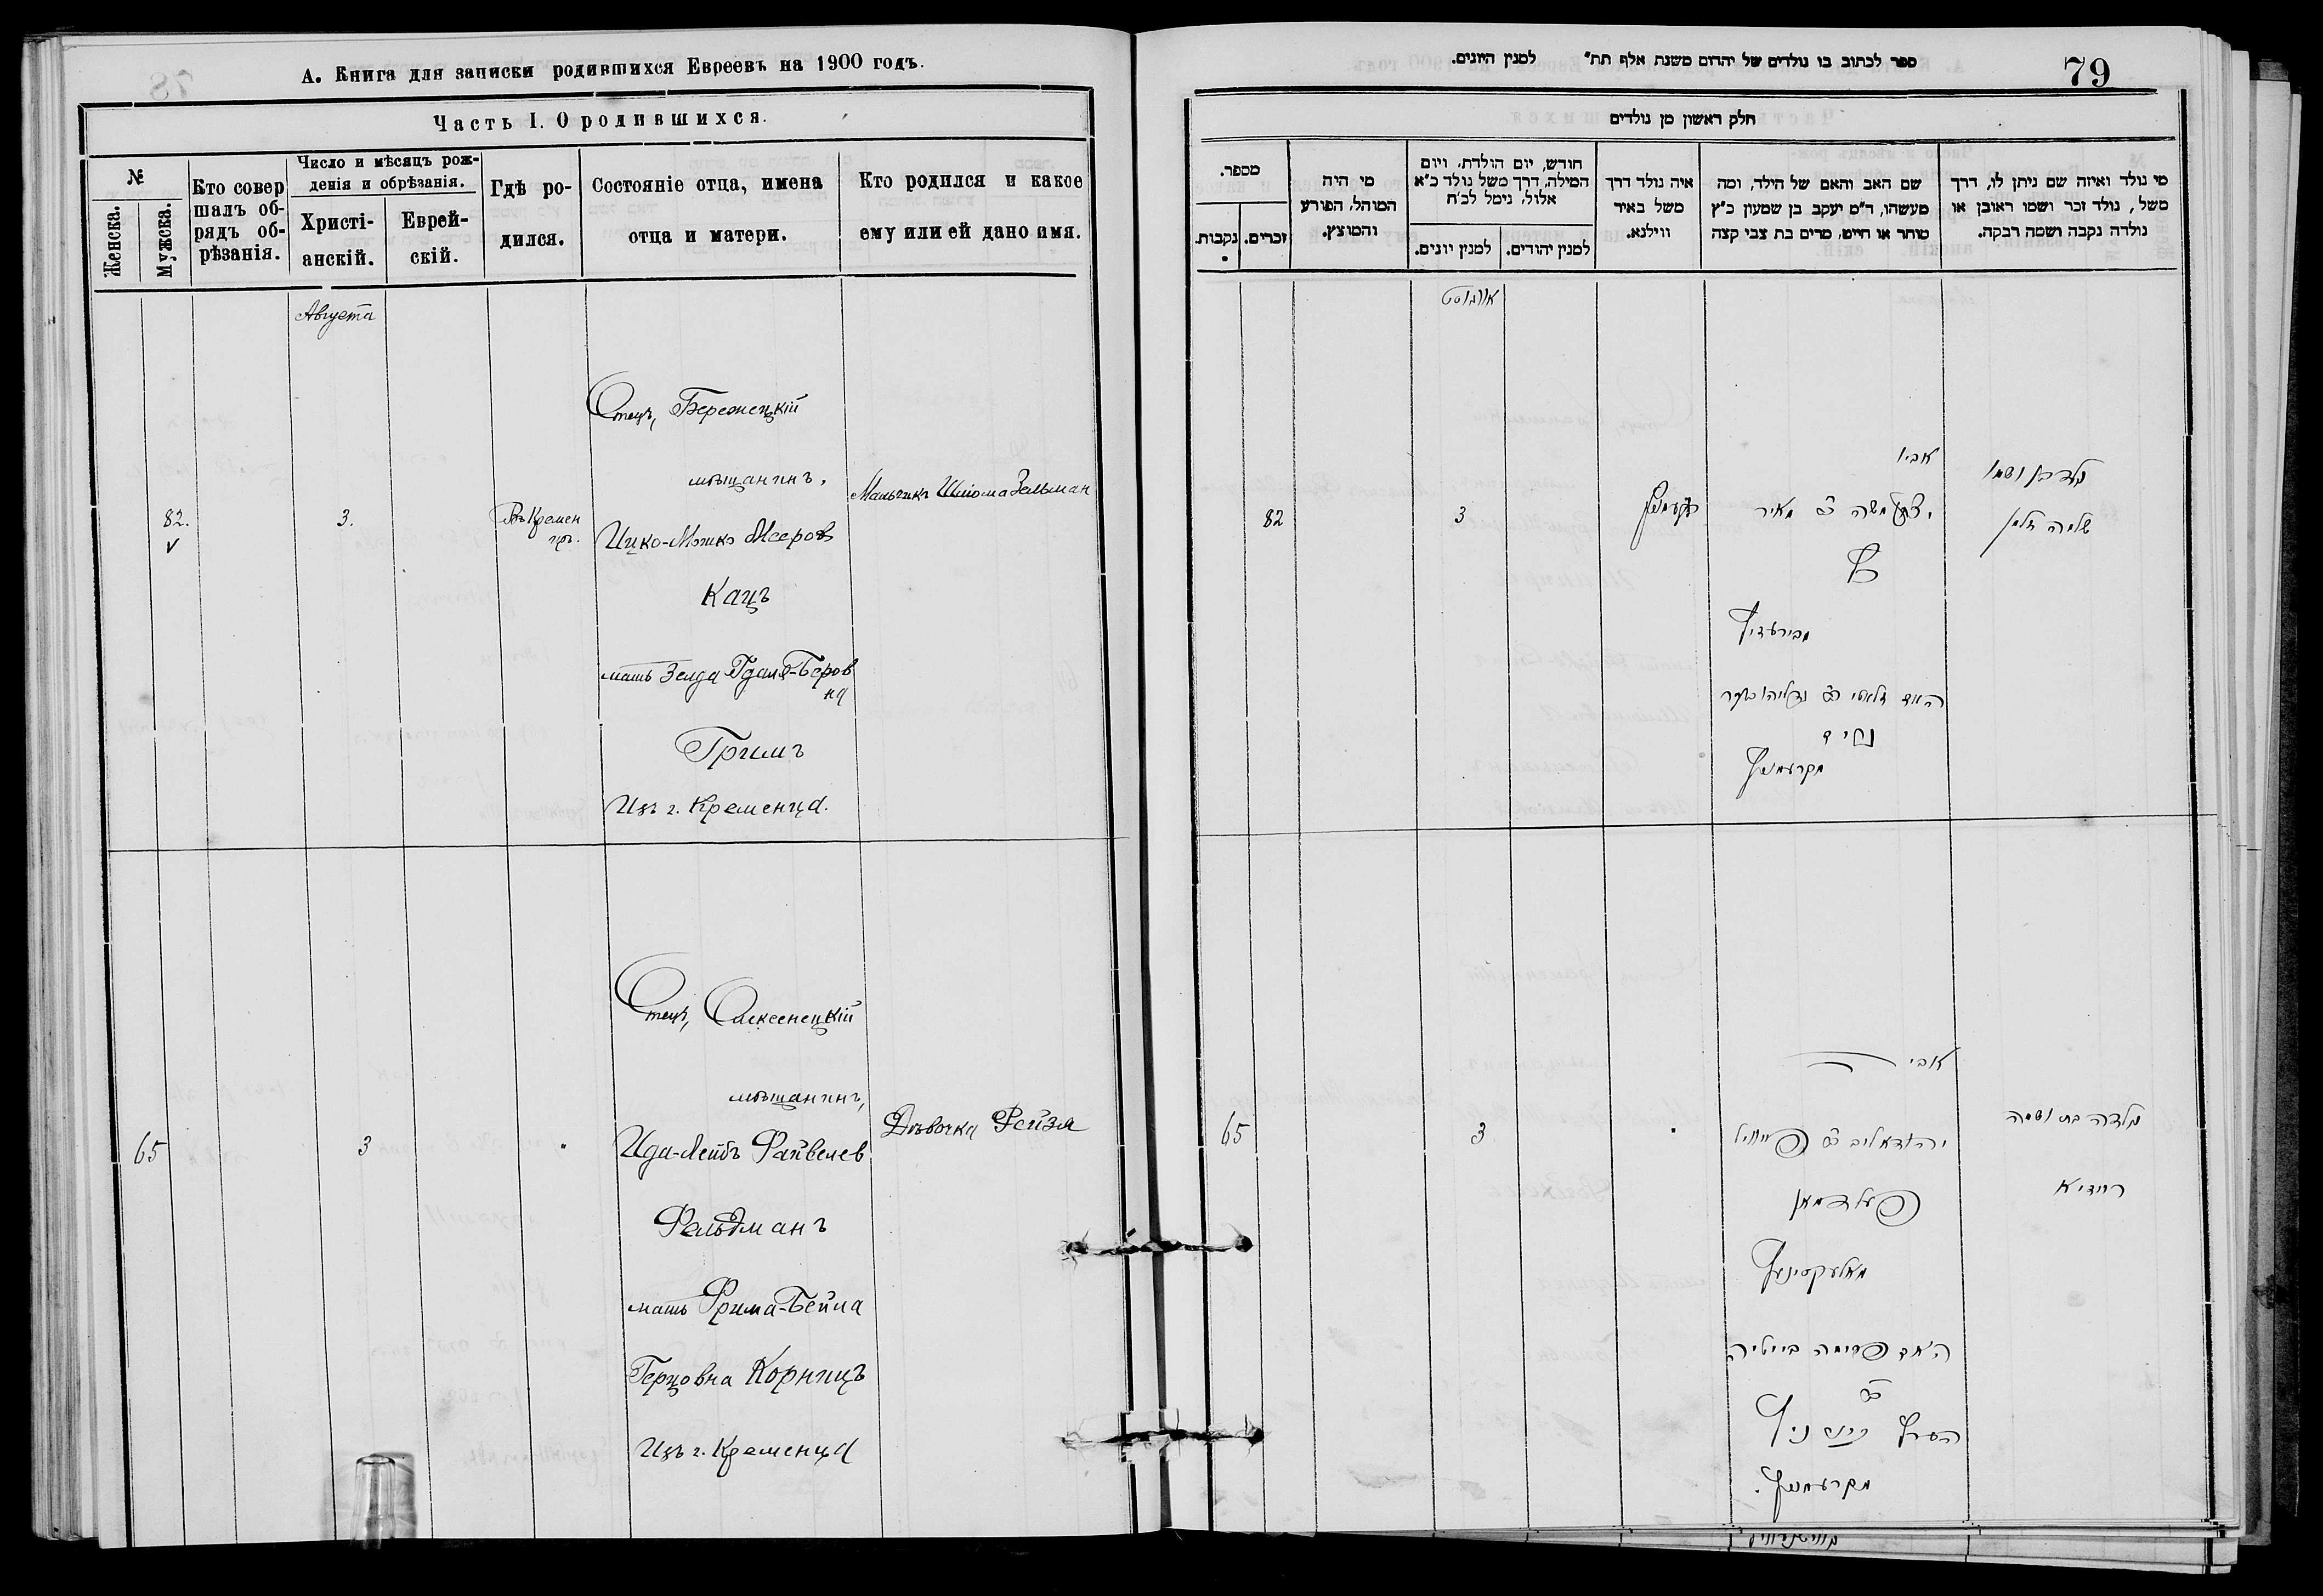 А. Книга для записки родившихся Евреевъ на 1900 годъ.
Часть I. О родившихся.
№
Женска.
Мужска.
Кто совер
шалъ об-
рядъ об-
рѣзанія.
Число и мѣсяцъ рож-
денія и обрѣзанія.
Христі-
анскій.
Еврей-
скій.
Гдѣ ро-
дился.
Состояніе отца, имена
отца и матери.
Кто родился и какое
ему или ей дано имя.
Августа
82.
3.
Въ Кремен
цѣ.
Отецъ, Бережецкій
мѣщанинъ,
Ицко-Мошко Мееровъ
Кацъ
мать Зелда Гдаля-Беров
на
Гримъ
Изъ г. Кременца.
Мальчикъ Шлёма Зельман
65
3
Отецъ, Олексенецкій
мѣщанинъ,
Ида-Лейбъ Файвелев
Фельдманъ
мать Фрима-Бейла
Герцовна Корницъ
Изъ г. Кременца
Дѣвочка Рейзя
ספר לכתוב בו נולדים של יהדים משנת אלף תת״ למנין היונים.
79
חלק ראשון מן נולדים
מספר.
נקבות.
זכרים.
מי היה
המוהל, הפורע
והמוצץ.
חודש, יום הולדת, ויום
המילה, דרך משל נולד כ״א
אלול, נימל לכ״ח
למנין יונים.
למנין יהודים.
איה נולד דרך
משל באיד
ווילנא.
שם האב והאם של הילד, ומה
מעשהו, ד״מ יעקב בן שמעון כ״ץ
סוחר או חייט, מרים בת צבי קצה
מי נולד ואיזה שם ניתן לו, דרך
משל, נולד זכר ושמו ראובן או
נולדה נקבה ושמה רבקה.
אווגוסט
82
3
אביו
משה ב״ר מאיר
נולד בן ושמו
שלמה זלמן
65
3
אבי
יהודא ליב ב״ר פייוויל
פעלדמאן
האם פרימה ביילה
ב״ר
הערץ
נולדה בת ושמה
רייזיא